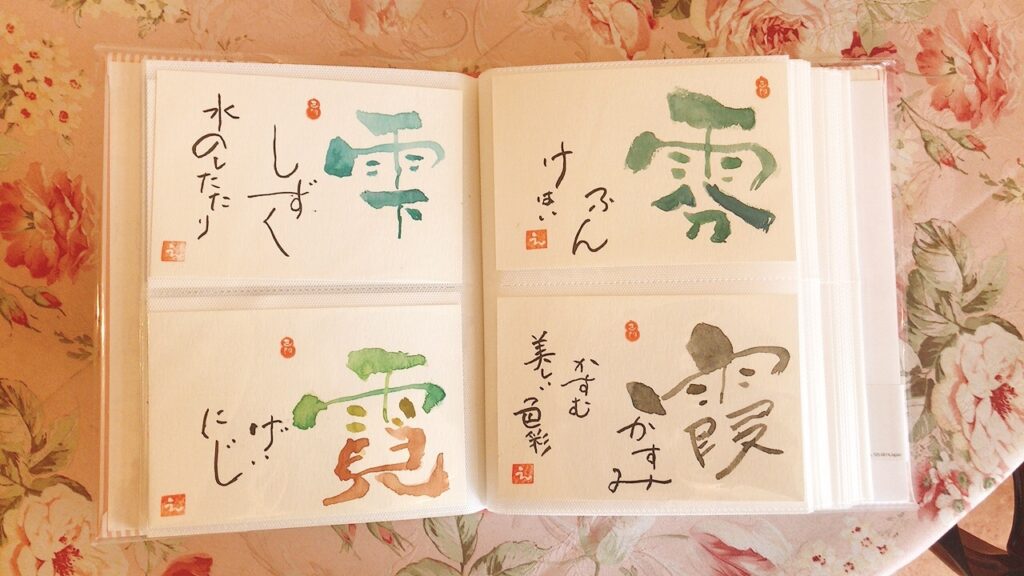 雫
しずく
水のしたたり
雰
ふん
けはい
霓
げい
にじ
霞
かすみ
かすむ
美しい色彩